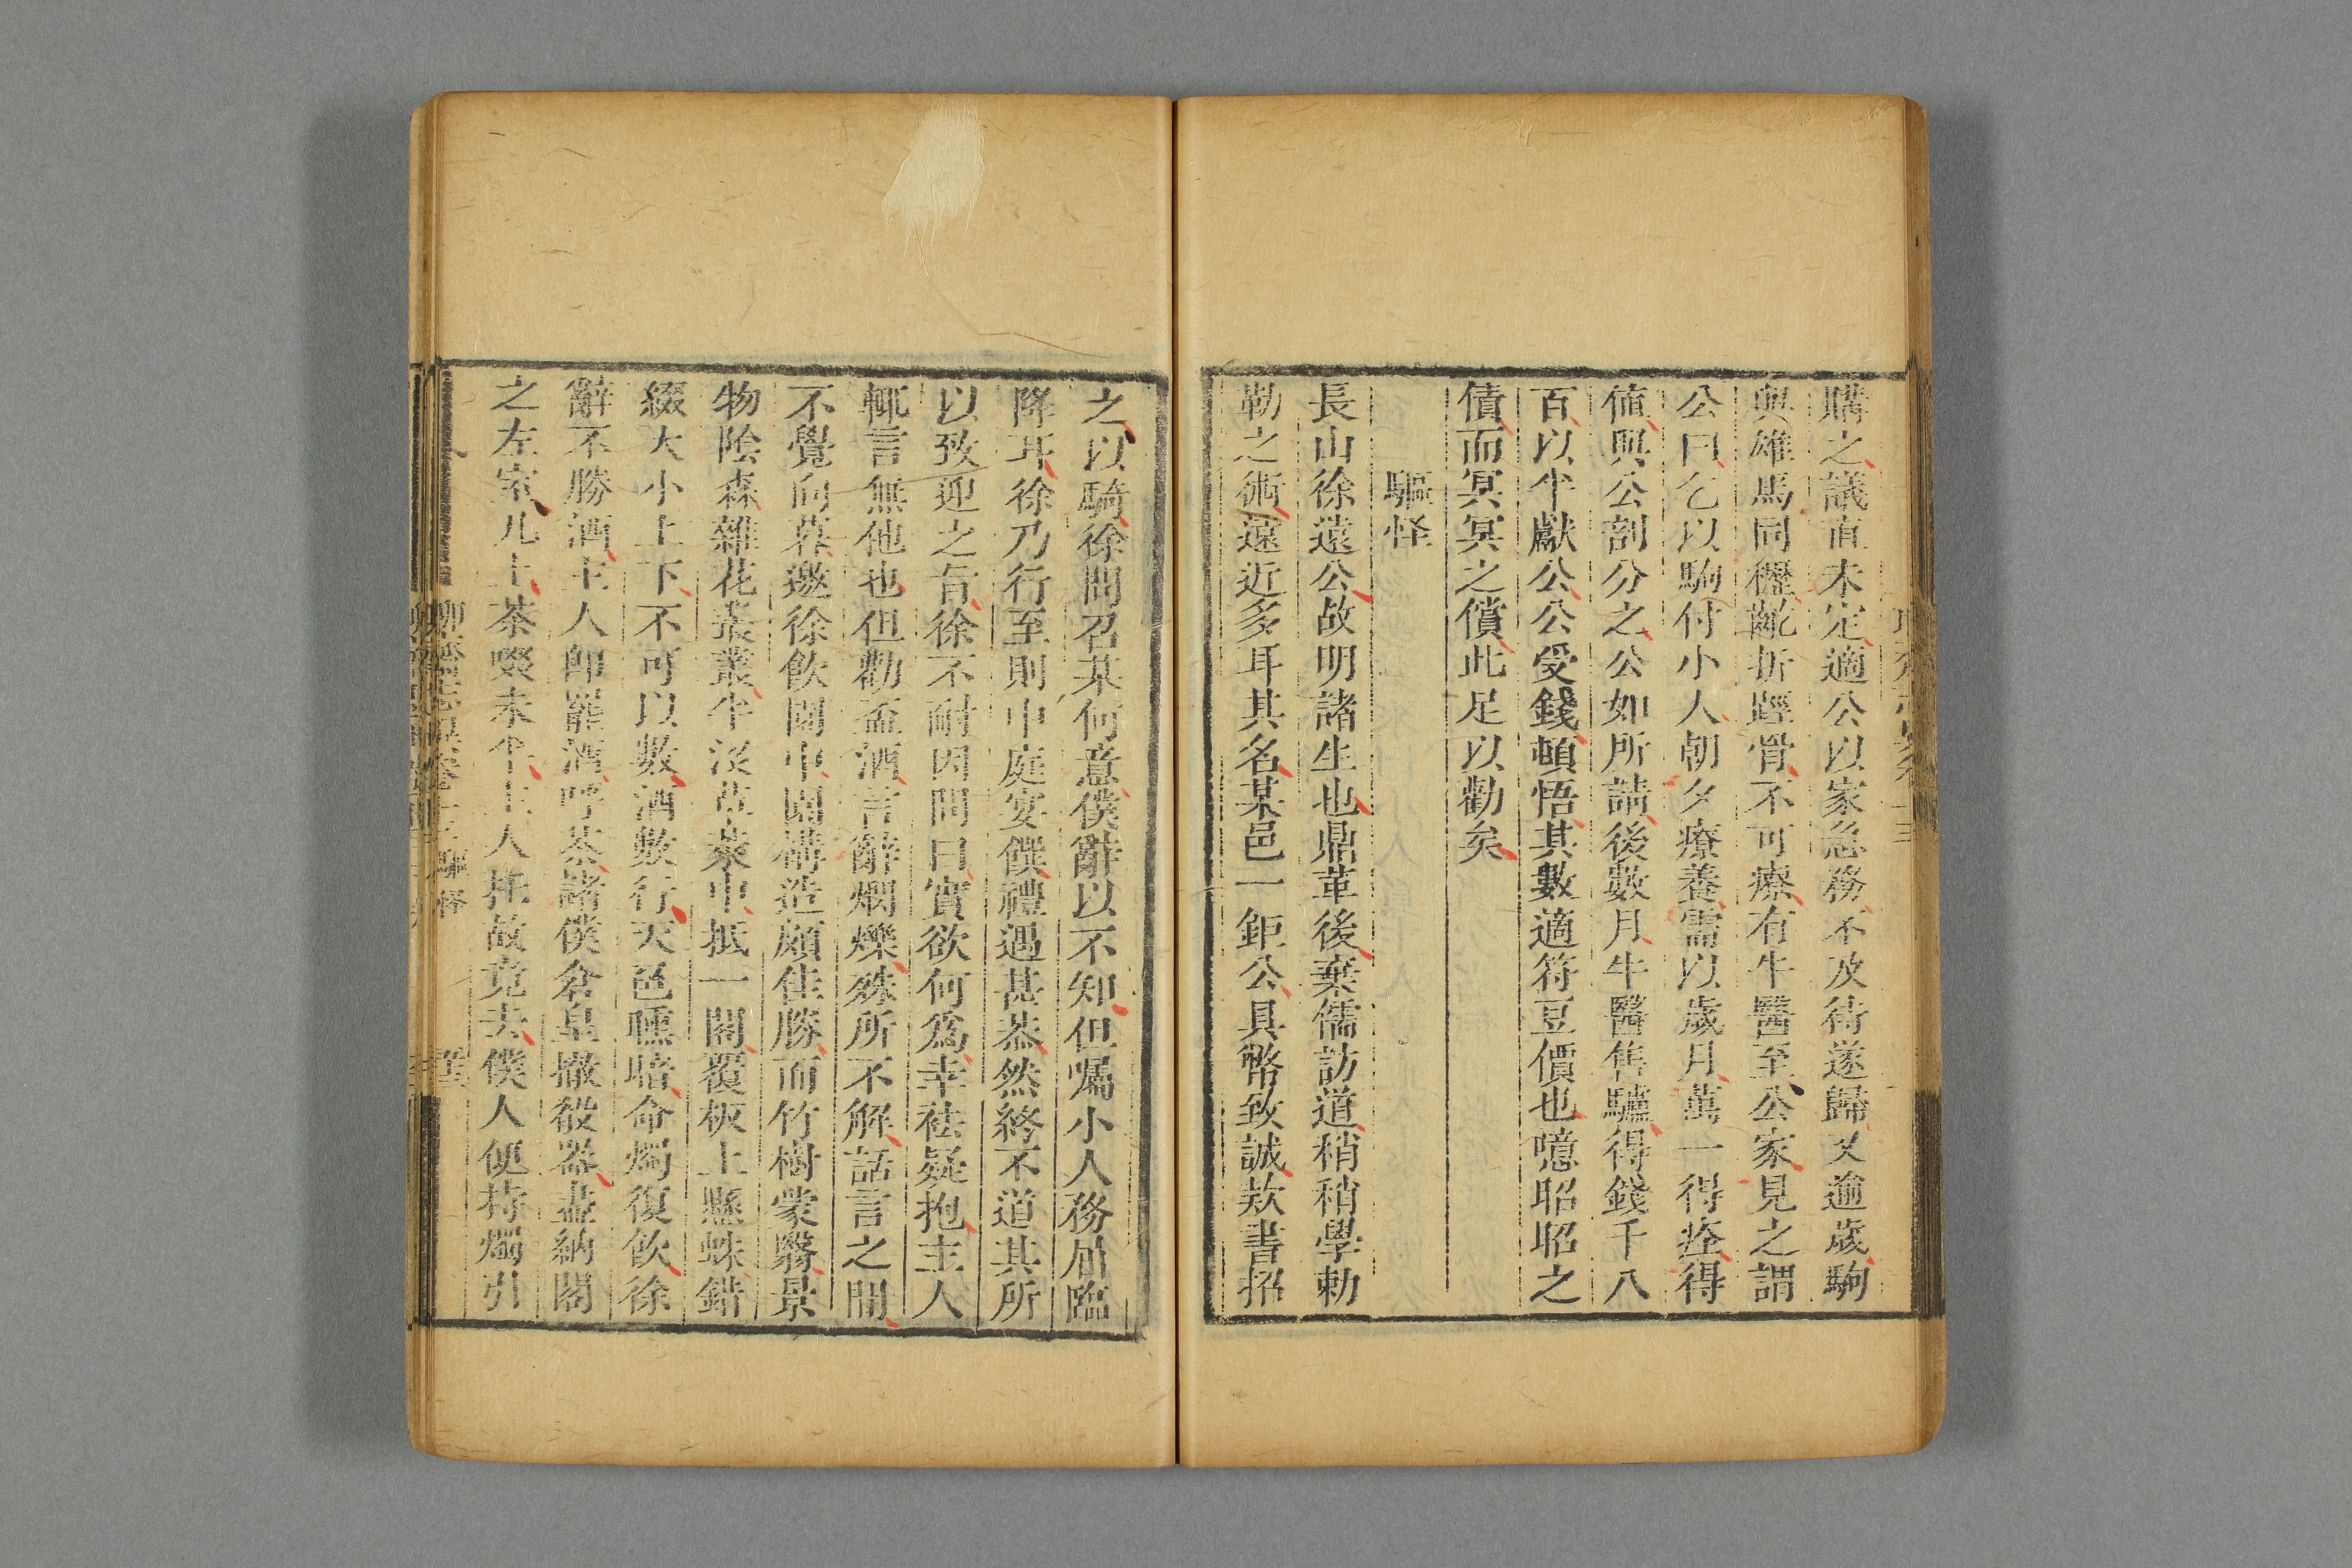 購之議直未定適公以家急務不及待遂歸又逾歲駒
與雄馬同櫪齕折脛骨不可療有牛醫至公家見之謂
公曰乞以駒付小人朝夕療養需以歲月萬一得痊得
値與公剖分之公如所請後數月牛醫售驢得錢千八
百以半獻公公受錢頓悟其數適符豆價也噫昭昭之
債而冥冥之償此足以勸矣
驅怪
長山徐遠公故明諸生也鼎革後棄儒訪道稍稍學勅
勒之術遠近多耳其名某邑一鉅公具幣致誠欵書招
之以騎徐問召某何意僕辭以不知但囑小人務屈臨
降耳徐乃行至則中庭宴饌禮遇甚恭然終不道其所
以致迎之旨徐不耐因問曰實欲何爲幸袪疑抱主人
輒言無他也但勸盃酒言辭爛爍殊所不解話言之間
不覺向暮邀徐飲園中園構造頗佳勝而竹樹蒙翳景
物陰森雜花叢叢半沒草萊中抵一閣覆板上懸蛛錯
綴大小上下不可以數酒數行天色曛暗命燭復飲徐
辭不勝酒主人卽罷酒呼茶諸僕倉皇撤殽器盡納閣
之左室几上茶啜未半主人托故竟去僕人便持燭引